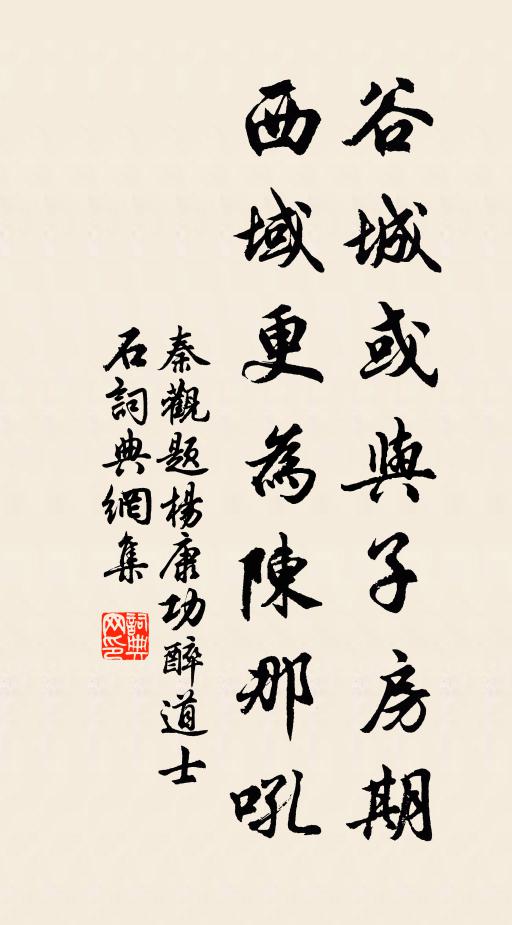 谷城或與子房期
西域更為陳那吼
秦觀題楊康功醉道士
石詞典網集
詞典
网印